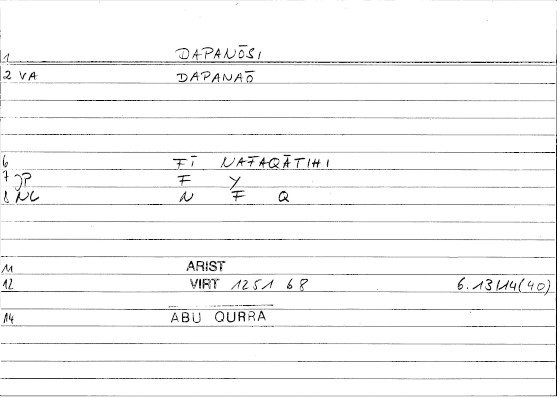 1 DAPANŌSI
2 VA DAPANAŌ
6 FĪ NAFAQĀTIHI
7 JP F Y
8 NL N F Q
11 ARIST
12 VIRT 1251 68 6.13
14 ABU QURRA